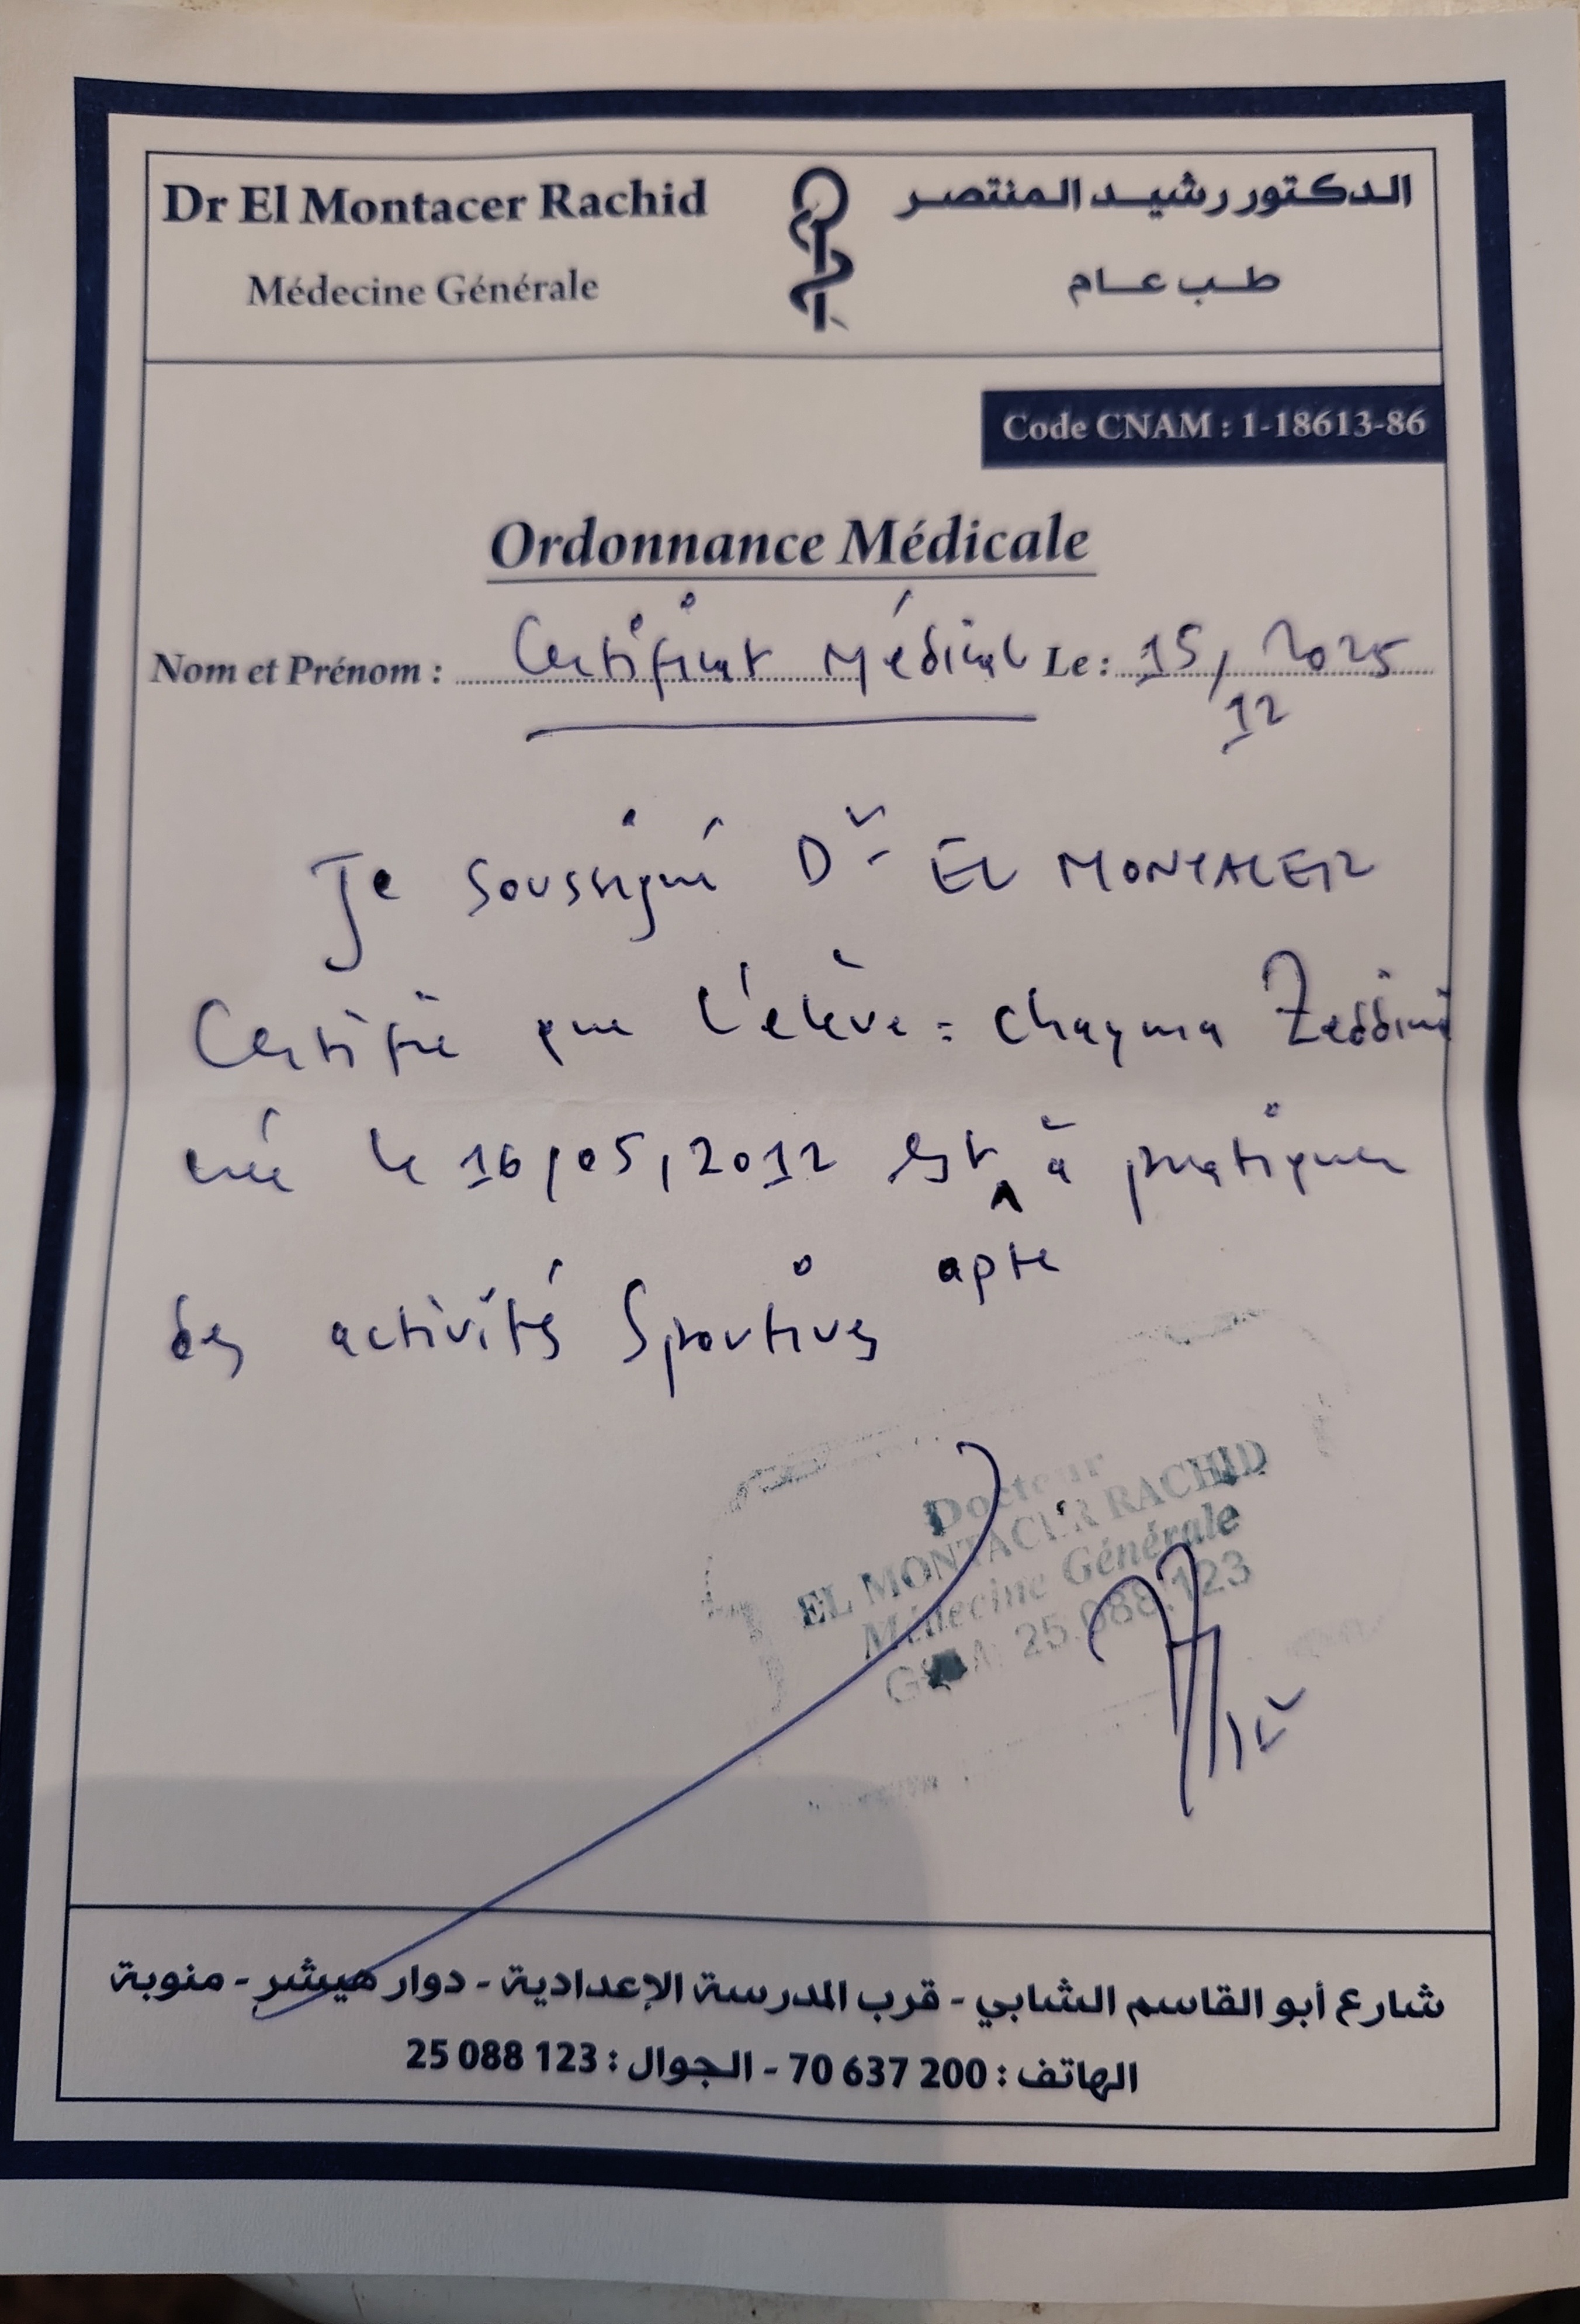 Dr El Montacer Rachid
الدكتور رشيد المنتصر
Médecine Générale
طب عام
Code CNAM : 1-18613-86
Ordonnance Médicale
Nom et Prénom : Certificat Médical Le : 15/12/2025
Je soussigné Dr EL MONTACER
Certifie que l'elève = Chayma Zeddini
née le 16/05/2012 est apte à pratiquer
des activités Sportives
Docteur
EL MONTACER RACHID
Médecine Générale
25.088.123
شارع أبو القاسم الشابي - قرب المدرسة الإعدادية - دوار هيشر - منوبة
الهاتف : 200 637 70 - الجوال : 123 088 25